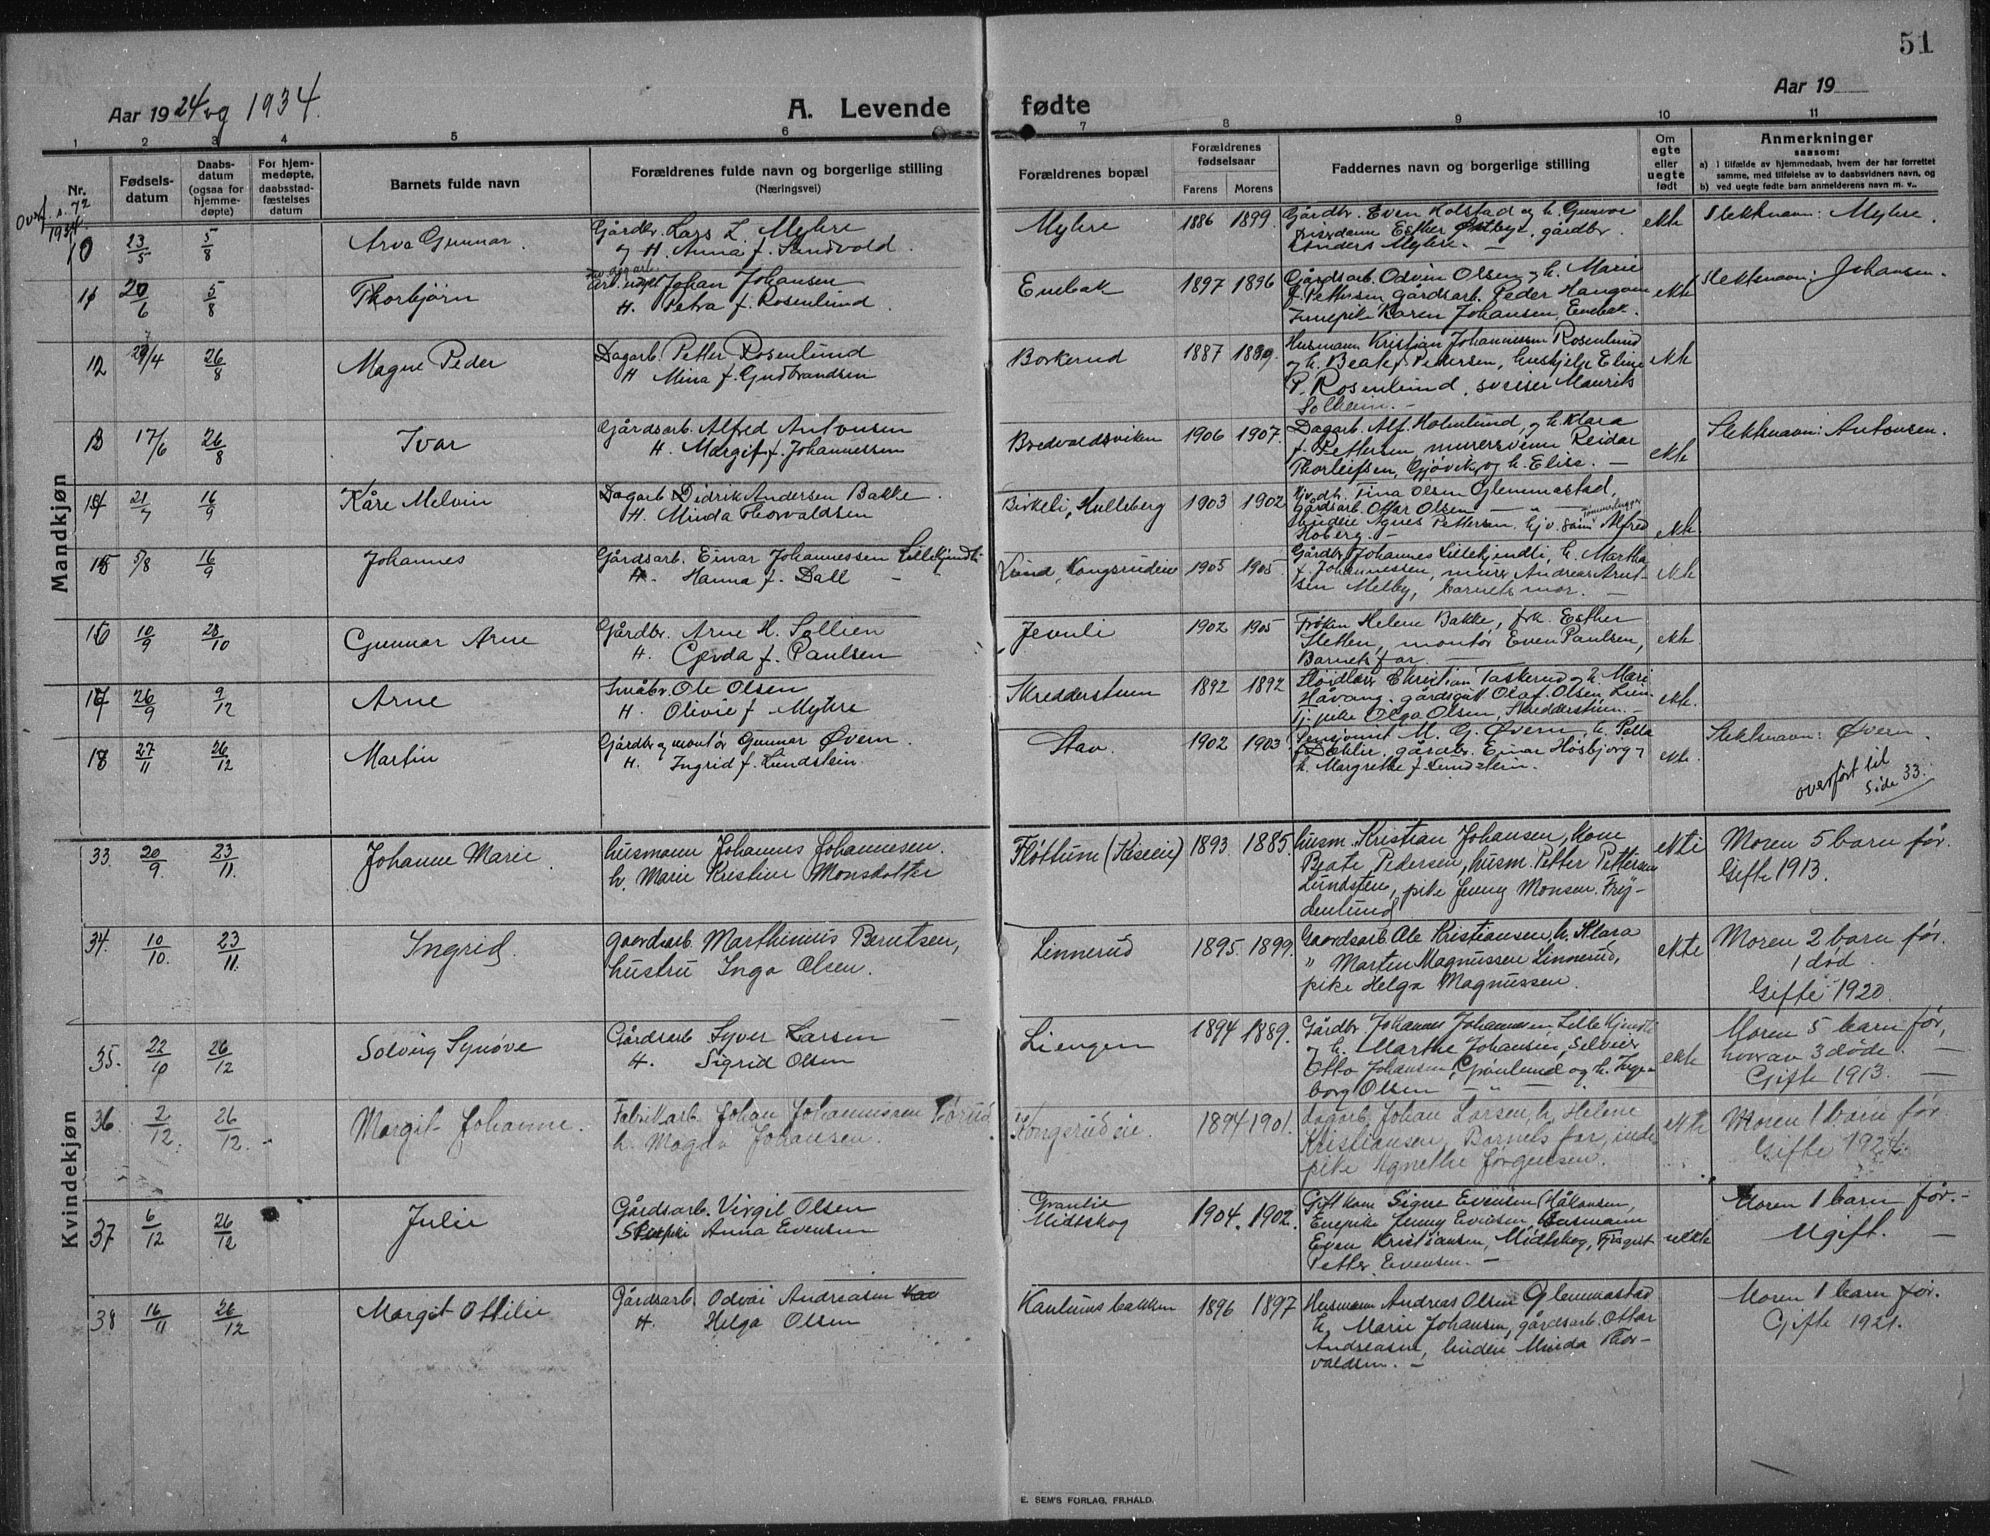 51
Aar 1924 og 1934.
A. Levende fødte
Aar 19
1 2 3 4 5 6 7 8 9 10 11
Nr.
Fødsels-
datum
Daabs-
datum
(ogsaa for
hjemme-
døpte)
For hjem-
medøpte,
daabsstad-
fæstelses
datum
Barnets fulde navn
Forældrenes fulde navn og borgerlige stilling
(Næringsvei)
Forældrenes bopæl
Forældrenes
fødselsaar
Farens Morens
Faddernes navn og borgerlige stilling
Om
egte
eller
uegte
født
Anmerkninger
saasom:
a) I tilfælde av hjemmedaab, hvem der har forrettet
samme, med tilføielse av to daabsvidners navn, og
b) ved uegte fødte barn anmelderens navn m. v..
Overf. s. 72
1934.
Mandkjøn
10 23/5 5/8 Arve Gunnar. Gårdbr. Lars L. Myhre
og H. Anna f. Sandvold.
Myhre 1886 1899 Gårdbr. Even Holstad og h. Gunvor
Esther Østbye, gårdbr.
Anders Myhre. —
ekte Slektsnavn: Myhre.
11 20/6 5/8 Thorbjørn Johan Johansen
H. Petra f. Rosenlund
Enebak 1897 1896 Gårdsarb. Odvin Olsen og h. Marie
f. Pettersen, gårdsarb. Peder Haugom
Innepike Karen Johansen, Enebak.
ekte Slektsnavn: Johansen.
12 29/4 26/8 Magne Peder Dagarb. Petter Rosenlund
H Mina f. Gudbrandsen
Borkerud 1887 1889. Husmann Kristian Johannessen Rosenlund
og h. Beate f. Pedersen, hushjelp Eline
P. Rosenlund, sveiser Maurits
Solheim. —
ekte
13 17/6 26/8 Ivar Gårdsarb. Alfred Antonsen
H. Margit f. Johannessen
Bredvoldsviken 1906 1907. Dagarb. Alf. Holmlund, og h. Klara
f. Pettersen, murersvenn Reidar
Thorleifsen, Gjøvik, og h. Elise. —
ekte Slektsnavn: Antonsen.
14 21/7 16/9 Kåre Melvin Dagarb. Didrik Andersen Bakke.
H. Minda Thorvaldsen
Birkeli, Hulleberg 1903 1902 Tina Olsen Glemmestad,
Gårdsarb. Ottar Olsen — " —
budeie Agnes Pettersen, Tømmerhugger Alfred
Hoberg. —
ekte
15 5/8 16/9 Johannes Gårdsarb. Einar Johannessen Lillekjindli
H. Hanna f. Dall —
Lund, Kongsrudeie 1905 1905 Gårdbr. Johannes Lillekjindli, h. Martha
f. Johannessen, murer Andreas Arnt-
sen Melby, barnets mor. —
ekte
16 10/9 28/10 Gunnar Arne Gårdbr. Arne H. Sollien
H. Gerda f. Paulsen
Jevnli 1902 1905 Frøken Helene Bakke, frk. Esther
Sletten, montør Even Paulsen,
Barnets far. —
ekte
17 26/9 9/12 Arne Småbr. Ole Olsen
H. Olivie f. Myhre
Skredderstuen 1892 1892 Christian Taskerud og h. Mari
Håvang, gårdsgutt Olaf Olsen, Lien
tj. pike Olga Olsen, Skredderstuen. —
ekte.
18 27/11 26/12 Martin Gårdbr. og montør Gunnar Øvern.
H. Ingrid f. Lundstein.
Stav 1902 1903 M. G. Øvern, h. Petla
f. Dæhlie, gårdbr. Einar Høsbjorg og
h. Margrethe f. Lundstein.
ekte. Slektsnavn: Øvern.
overført til
side 33.
Kvindekjøn
33. 20/9 23/11. Johanne Marie husmann Johannes Johannesen.
h. Marie Kristine Monsdotter
Fløttum (Kiseie) 1893. 1885. husm. Kristian Johansen, kone
Beate Pedersen, husm. Petter Pettersen
Lundsten, pike Jenny Monsen. Fry-
denlund
ekte Moren 5 barn før.
Gifte 1913.
34. 10/10. 23/11. Ingrid. gaardsarb. Marthinius Berntsen,
hustru Inga Olsen.
Linnerud 1895. 1899. Gaardsarb. Ole Kristiansen, h. Klara
" Marten Magnussen Linnerud,
pike Helga Magnussen.
ekte Moren 2 barn før.
1 død.
Gifte 1920.
35. 22/10 26/12 Solveig Synøve Gårdsarb Syver Larsen
H. Sigrid Olsen
Liengen 1894 1889. Gårdbr. Johannes Johannesen Lille Kjindli
og h. Marthe Johansen, Selveier
Otto Johansen, Grønlund og h. Inge-
borg Olsen — " —
ekte Moren 5 barn før,
hvorav 3 døde. —
Gifte 1913. —
36. 2/12. 26/12. Margit Johanne. Fabrikarb. Johan Johannessen
h. Magda Johansen.
Kongsrudeie. 1894 1901. dagarb. Johan Larsen, h. Helene
Kristiansen, Barnets far, inde
pike Agnethe Jørgensen.
ekte Moren 1 barn før
Gifte 1924.
37 6/12 26/12 Julie Gårdsarb. Virgil Olsen
Anna Evensen
Granlie
Midtskog
1904. 1902. Gift kone Signe Evensen (Håkonsen,
Enepike Jenny Evensen, husmann
Even Kristiansen, Midtskog,
Petter Evensen. —
uekte Moren 1 barn før. —
Ugift. —
38 16/11 26/12 Margit Ottilie Gårdsarb. Odvar Andreasen
H. Helga Olsen
Kanlunsbakken 1896 1897 Husmann Andreas Olsen Glemmestad
h. Marie Johansen, gårdsarb. Ottar
Andreasen, budeie Minda Thor-
valdsen. —
Moren 1 barn før.
Gifte 1921.
E. SEM'S FORLAG, FR.HALD.